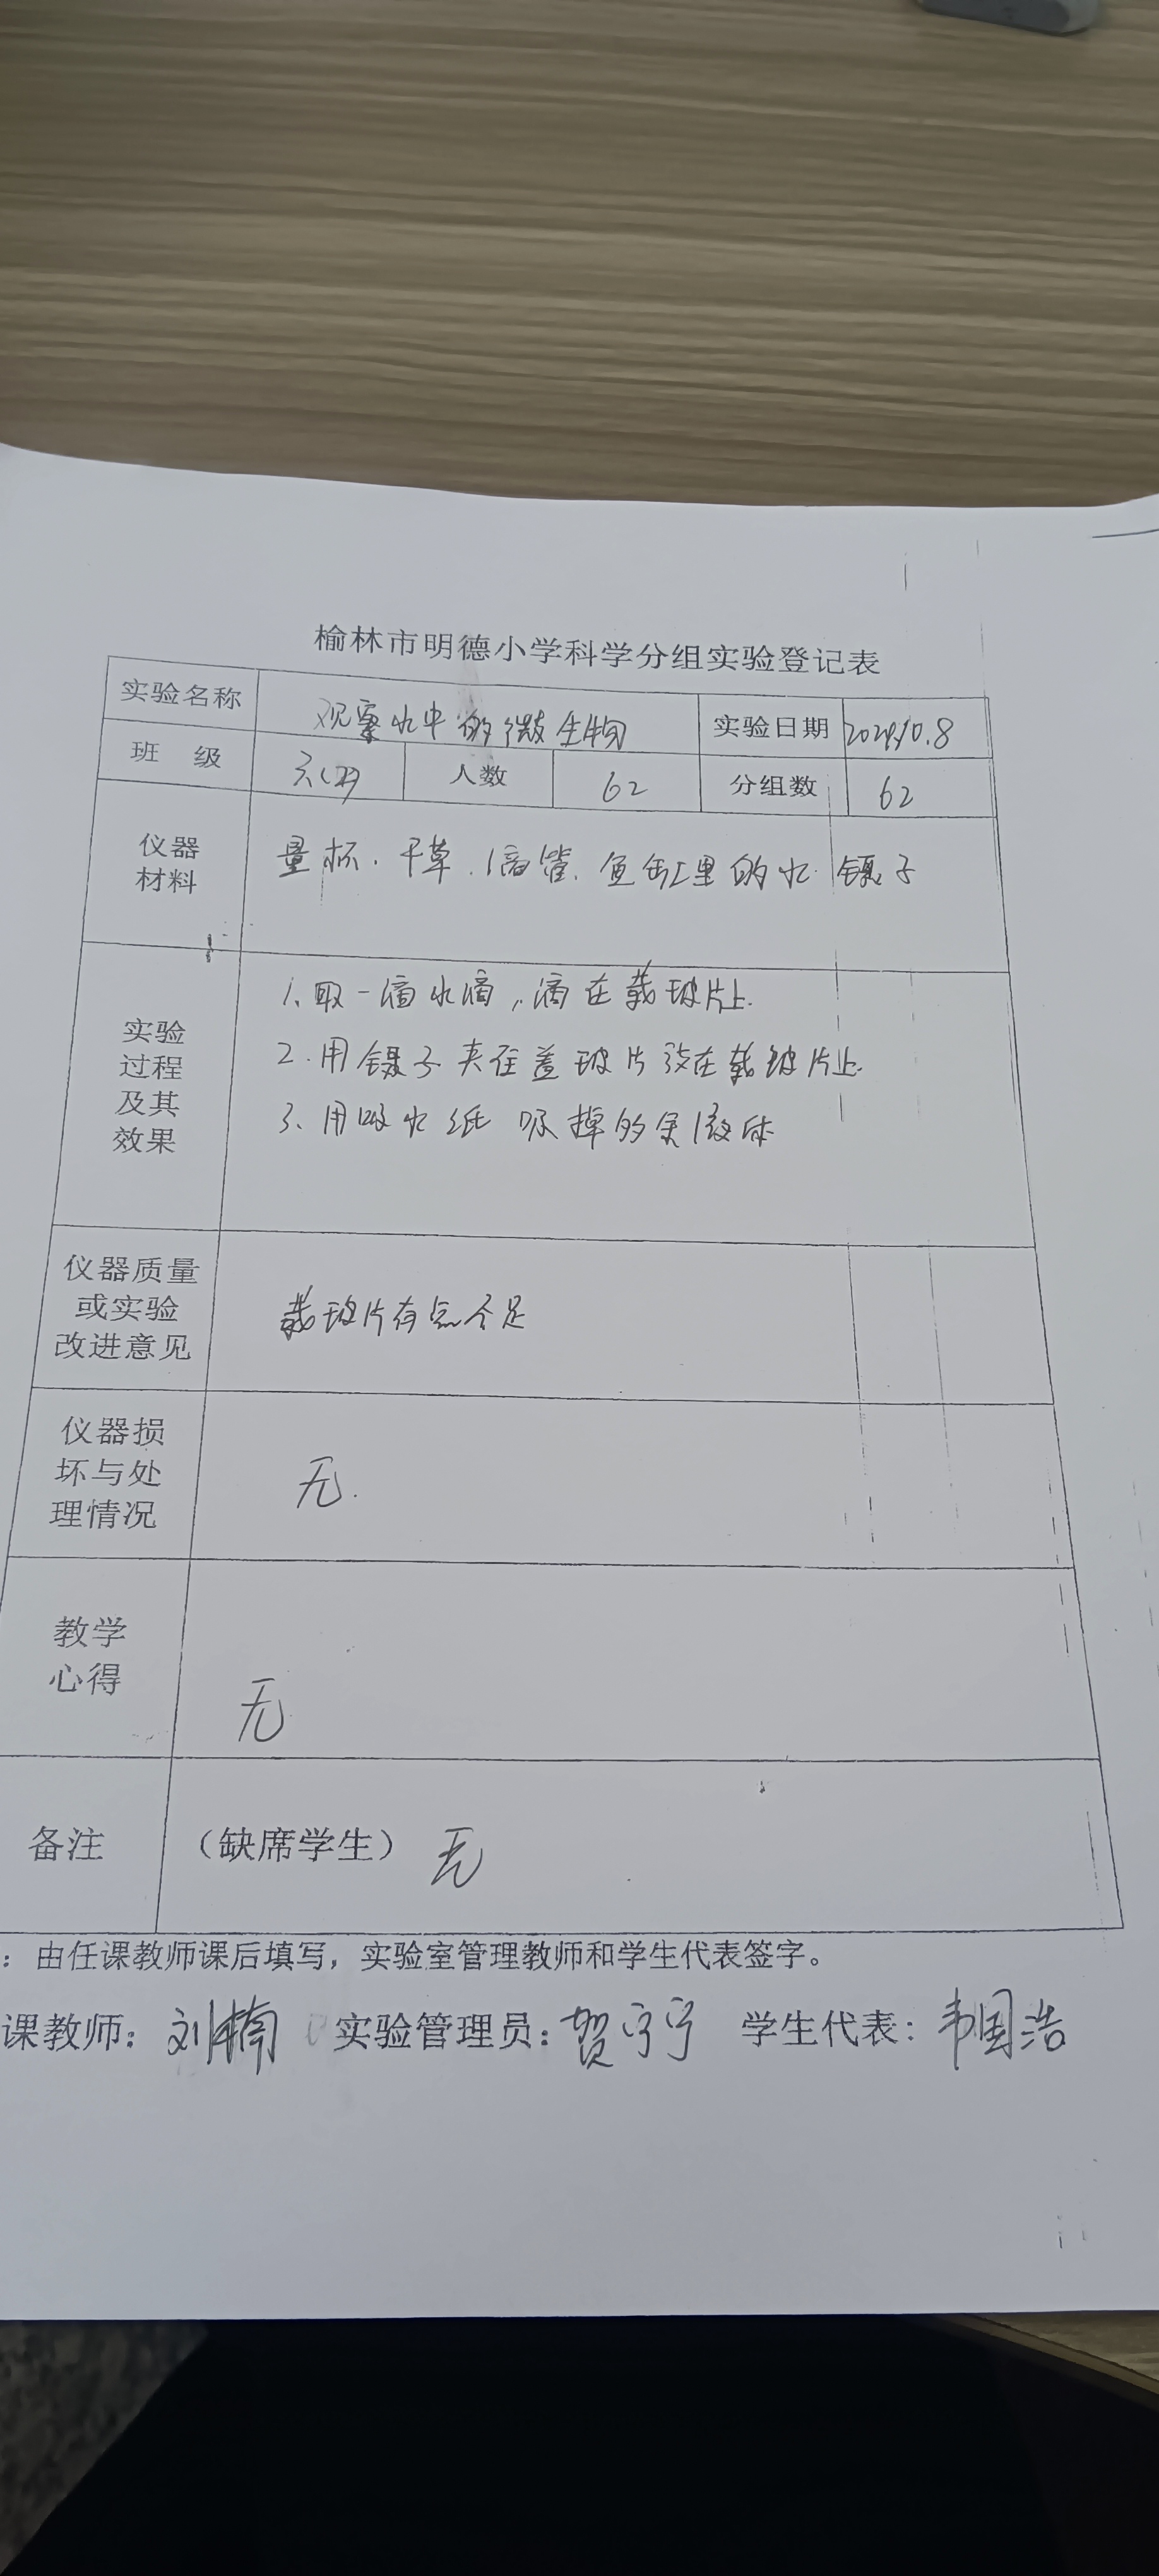 榆林市明德小学科学分组实验登记表
实验名称 观察水中的微生物 实验日期
班 级 人数 62 分组数 62
仪器
材料
量杯、干草、滴管、鱼缸里的水、镊子
实验
过程
及其
效果
1、取一滴水滴,滴在载玻片上.
2.用镊子夹住盖玻片放在载玻片上.
3、用吸水纸吸掉的余液体
仪器质量
或实验
改进意见
载玻片有点不足
仪器损
坏与处
理情况
无.
教学
心得
无
备注 (缺席学生) 无
:由任课教师课后填写,实验室管理教师和学生代表签字。
课教师: 刘楠 实验管理员: 贺宁宁 学生代表: 韦国浩